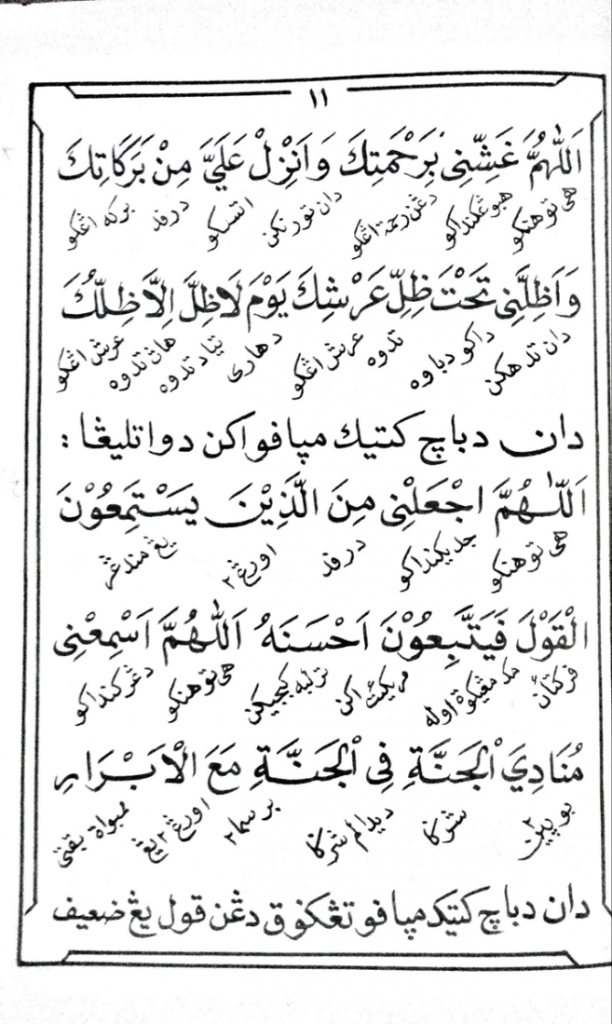 ١١
اَللّٰهُمَّ غَشِّنِىْ بِرَحْمَتِكَ وَاَنْزِلْ عَلَيَّ مِنْ بَرَكَاتِكَ
هي توهنكو همبوڠكنداكو دڠن رحمة اڠكو دان تورنكن اتسكو درفد بركة اڠكو
وَاَظِلَّنِى تَحْتَ ظِلِّ عَرْشِكَ يَوْمَ لَاظِلَّ اِلَّاظِلُّكَ
دان تدهكن داكو دباوه تدوه عرش اڠكو دهاري تياد تدوه هاڽ تدوه عرش اڠكو
دان دباچ كتيك مپافو اكن دوا تليڠا :
اَللّٰهُمَّ اجْعَلْنِى مِنَ الَّذِيْنَ يَسْتَمِعُوْنَ
هي توهنكو جديكنداكو درفد اورڠ٢ يڠ مندڠر
الْقَوْلَ فَيَتَّبِعُوْنَ اَحْسَنَهُ اَللّٰهُمَّ اَسْمِعْنِى
فركتان مك مڠيكوة اوله مريكئت اكن ترلبه كبجيكن هي توهنكو دڠركنداكو
مُنَادِيَ الْجَنَّةِ فِى الْجَنَّةِ مَعَ الْاَبْرَارِ
شركا ديدالم شركا برسما٢ اورڠ٢ يڠ ممبواة بقتي
دان دباچ كتيك مپافو تڠكوق دڠن قول يڠ ضعيف